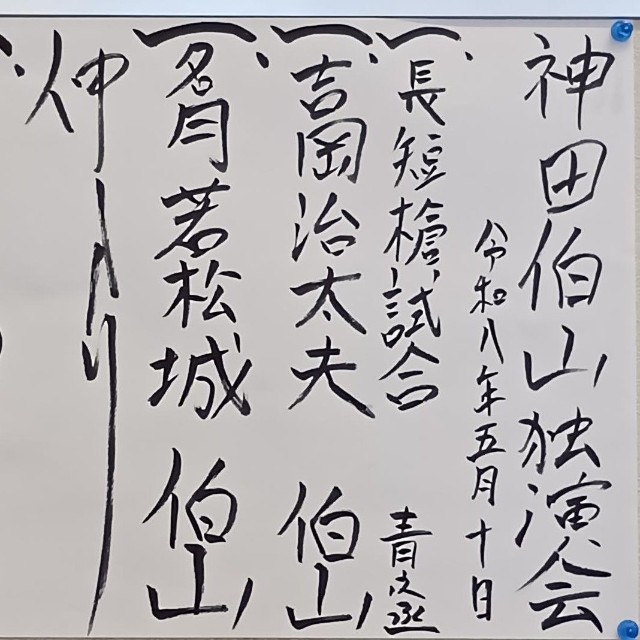 神田伯山独演会
令和八年五月十日
一、長短槍試合 青之丞
一、吉岡治太夫 伯山
一、名月若松城 伯山
仲入り